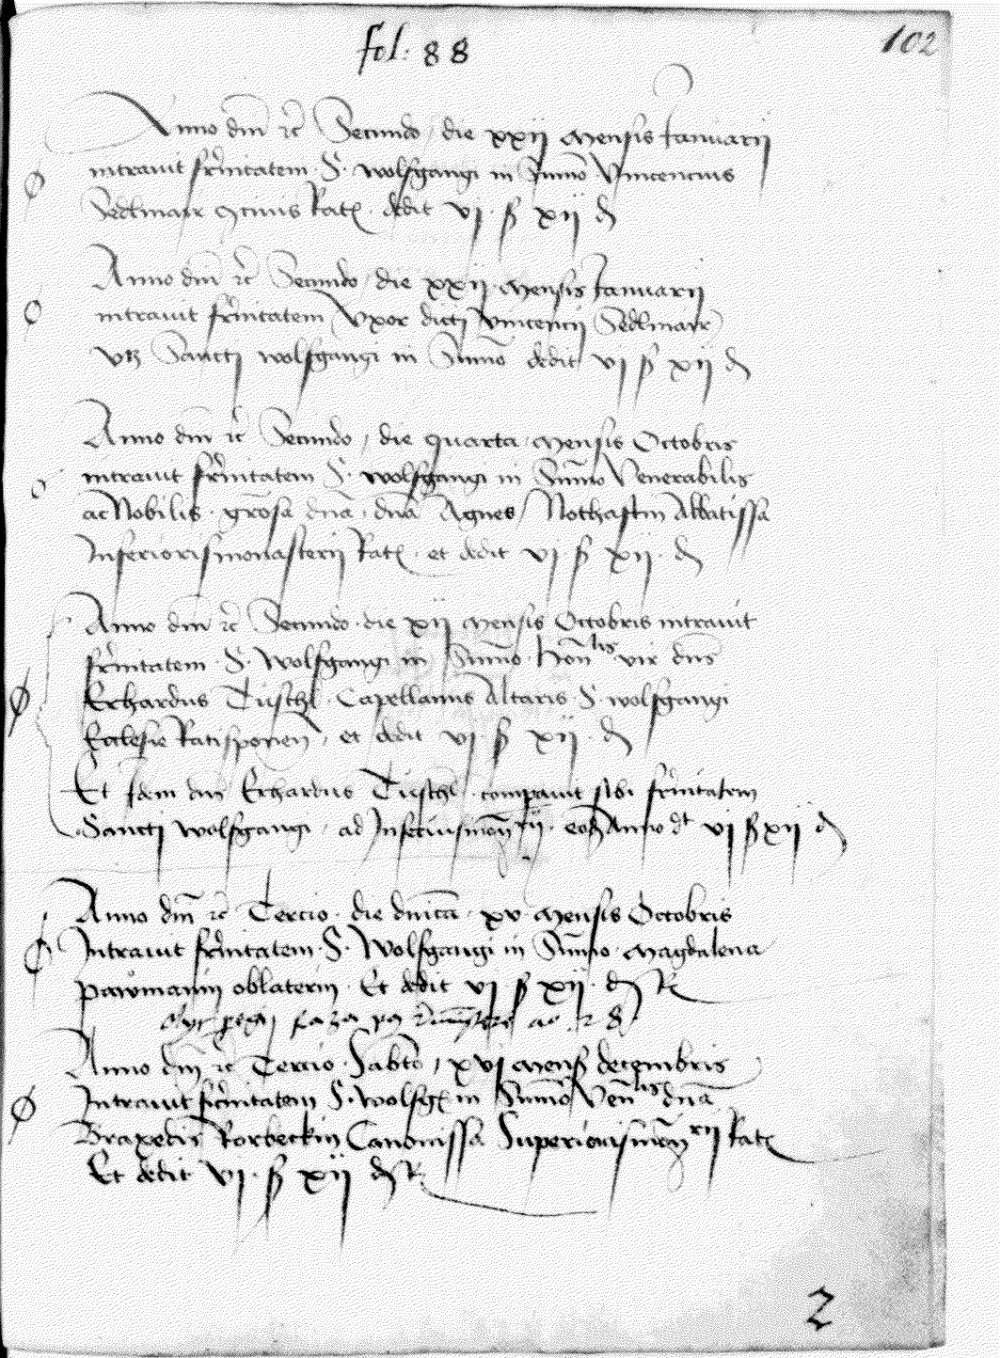 fol: 88
102
Anno dm̄ ⁊c̄ Secundo / die xxij mensis Januarij
intrauit fr̄nitatem · S · wolfgangi in Sum̄o · Vincencius
Sedlmair Ciuis Rat · dedit vj · ß xij ₰
Anno dm̄ ⁊c̄ Secundo / die xxij · mensis Januarij
intrauit fr̄nitatem Vxor dicti Vincencij Sedlmair
Sancti wolfgangi in Sum̄o dedit vj ß xij ₰
Anno dm̄ ⁊c̄ Secundo / die quarta · mensis Octobris
intrauit fr̄nitatem S · wolfgangi in Sum̄o Venerabilis
ac Nobilis · grōsa dn̄a / dn̄a Agnes / Nothaftin Abbatissa
Inferioris monasterij Rat · et dedit vj · ß xij · ₰
Anno dm̄ ⁊c̄ Secundo · die xij mensis Octobris intrauit
fr̄nitatem · S · Wolfgangi in Sum̄o · Hon̄lis · vir dn̄s
Erhardus Tuschl · Capellanus Altaris S · wolfgangi
Ecclesie Ratisponen̄ / et dedit vj · ß xij · ₰
Et Idem dn̄s Erhardus Tuschl · comparuit sibi fr̄nitatem
Sancti wolfgangi / ad Inferius mon̄rij · Anno dt vj ß xij ₰
Anno dm̄ ⁊c̄ Tercio · die dn̄ica · xv · mensis Octobris
Intrauit fr̄nitatem · S · Wolfgangi in Sum̄o · Magdalena
pawmanin oblaterin · Et dedit vj ß xij · ₰ R
Anno dm̄ ⁊c̄ Tercio · Sabbto / xvj mens decembris
Intrauit fr̄nitatem S · wolfg in Sum̄o Ven̄lis dn̄a
Braxedis Rorbeckin Canonissa Superioris mon̄rij Rat
Et dedit vj · ß xij ₰ R
2